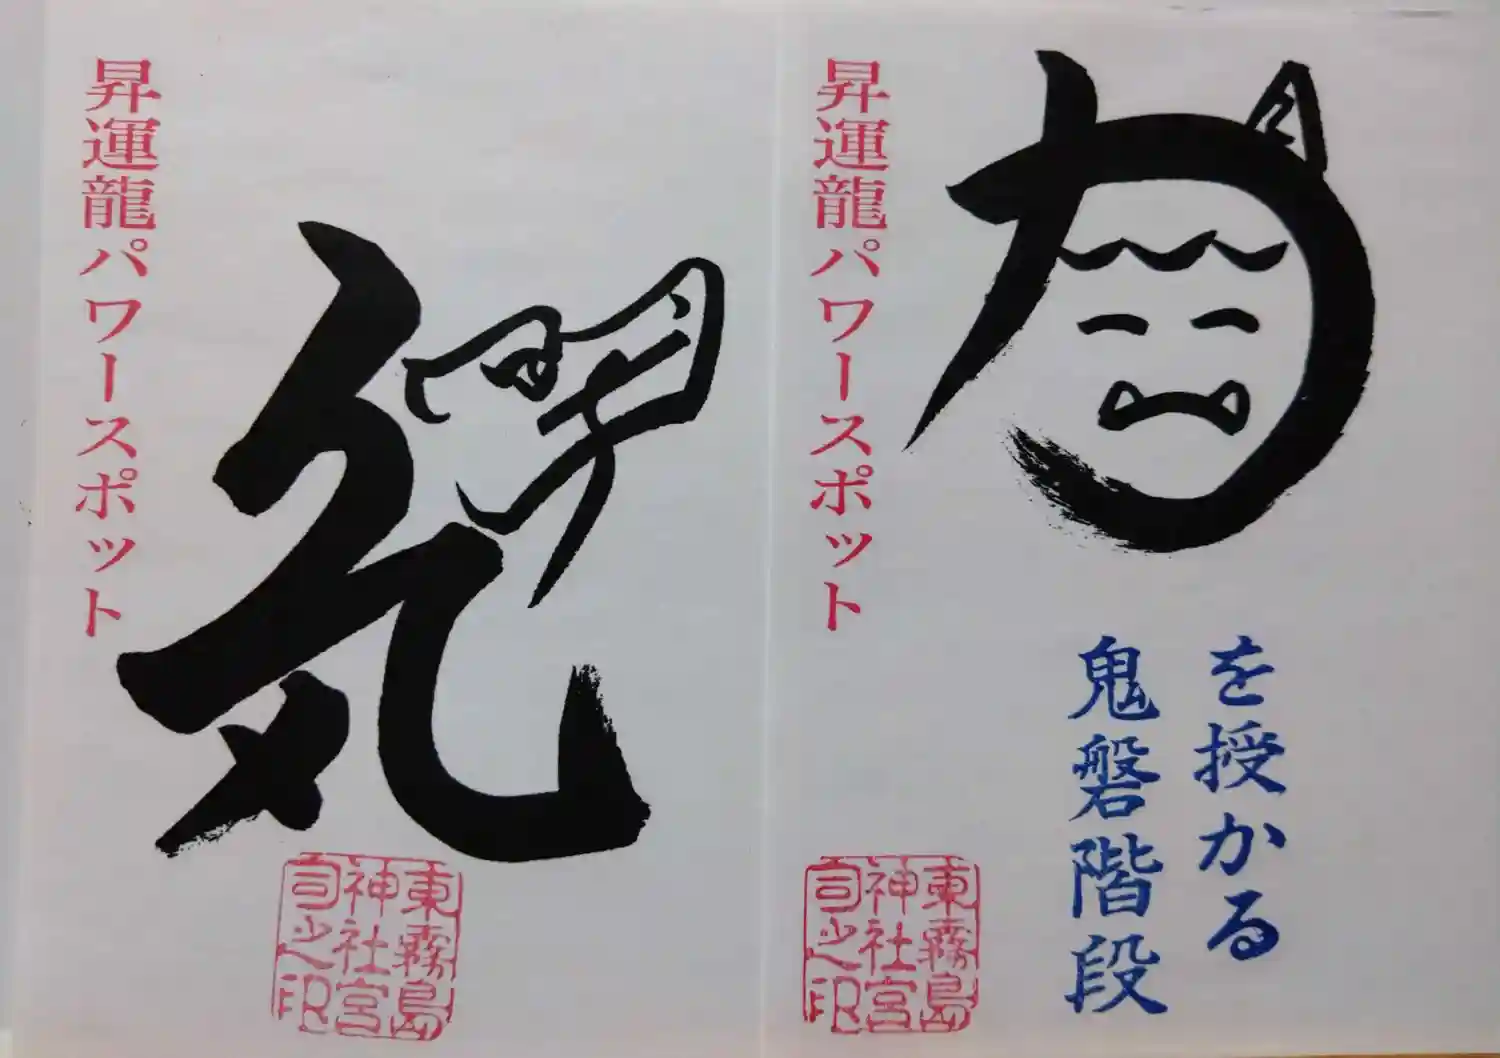 昇運龍パワースポット
力
を授かる
鬼磐階段
東霧島
神社宮
司之印
昇運龍パワースポット
気
東霧島
神社宮
司之印